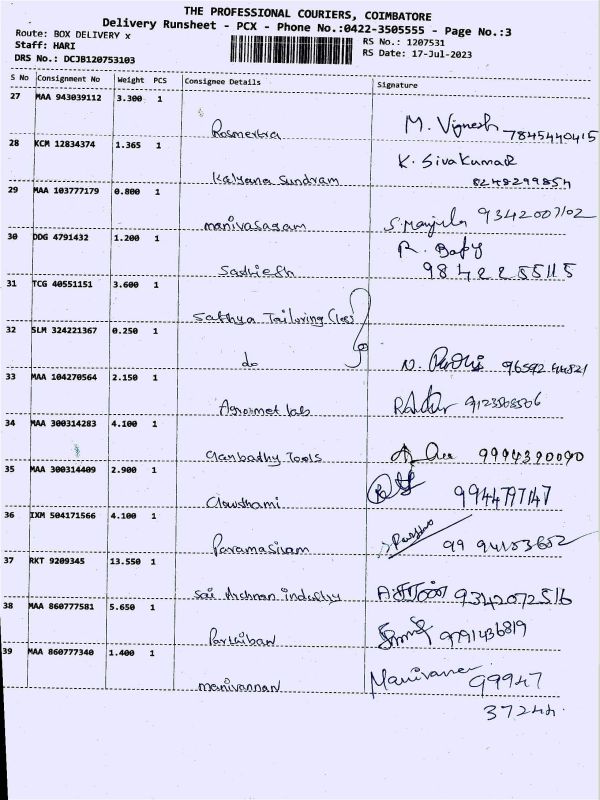 THE PROFESSIONAL COURIERS, COIMBATORE
Delivery Runsheet - PCX - Phone No.:0422-3505555 - Page No.:3
Route: BOX DELIVERY x
RS No.: 1207531
Staff: HARI
RS Date: 17-Jul-2023
DRS No.: DCJB120753103
S No Consignment No Weight PCS Consignee Details Signature
27 MAA 943039112 3.300 1
M. Vignesh 7845440415
28 KCM 12834374 1.365 1
K. SivaKumar
Kalyana Sundram 8248299854
29 MAA 103777179 0.800 1
manivasagam S. Manjula 9342007102
30 DDG 4791432 1.200 1
R. Baby
Sathish 9842285515
31 TCG 40551151 3.600 1
Sathya Tailoring
32 SLM 324221367 0.250 1
do N.
33 MAA 104270564 2.150 1
Agromet labs
34 MAA 300314283 4.100 1
Ganbathy Tools 9994390090
35 MAA 300314409 2.900 1
Chowdhami 9944797147
36 IXM 504171566 4.100 1
Paramasivam 9994153652
37 RKT 9209345 13.550 1
Sai industry 9342072516
38 MAA 860777581 5.650 1
Parthiban 9791436819
39 MAA 860777340 1.400 1
manivannan Manivanan 99947
37244.